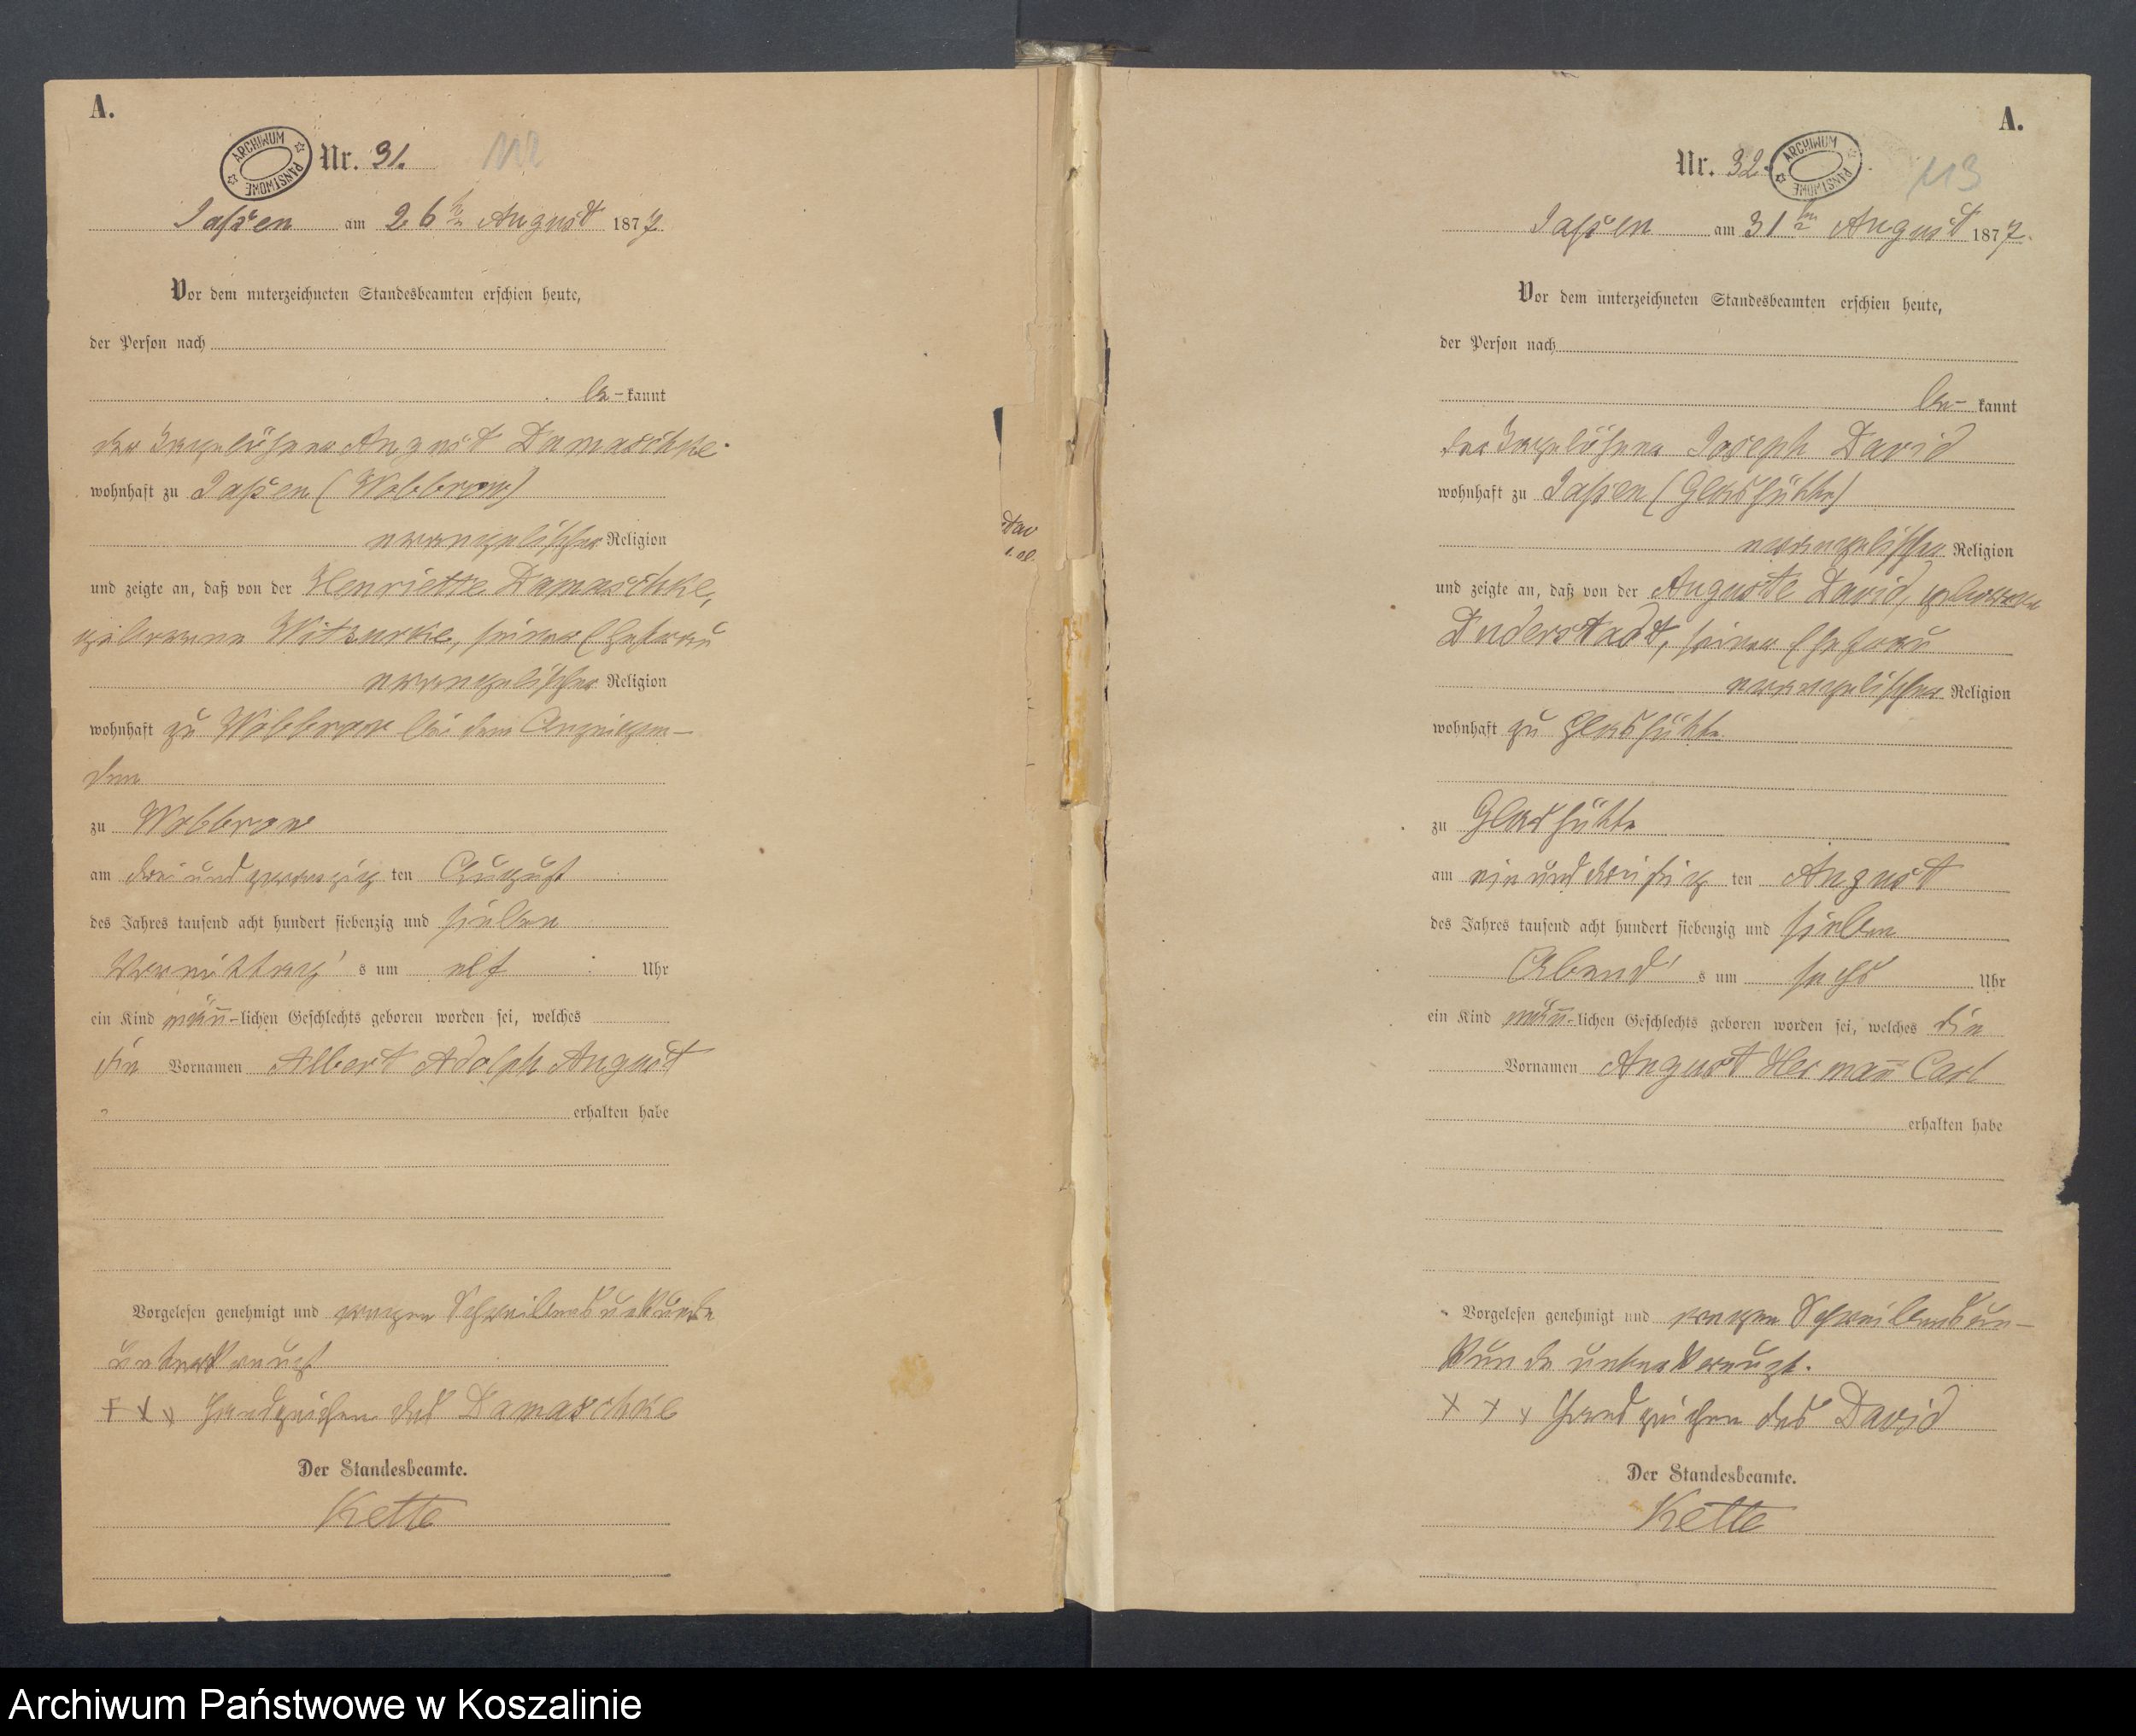 A.
ARCHIWUM PAŃSTWOWE
Nr. 31.
112
Jaßen am 26ten August 1877.
Vor dem unterzeichneten Standesbeamten erschien heute,
der Person nach
be-kannt
der Tagelöhner August Damaschke
wohnhaft zu Jaßen (Wobbrow)
evangelischer Religion
und zeigte an, daß von der Henriette Damaschke,
geborene Witzurke, seiner Ehefrau
evangelischer Religion
wohnhaft zu Wobbrow bei dem Anzeigen-
den
zu Wobbrow
am drei und zwanzig ten August
des Jahres tausend acht hundert siebenzig und sieben
Vormittag's um elf Uhr
ein Kind männ-lichen Geschlechts geboren worden sei, welches
die Vornamen Albert Adolph August
erhalten habe
Vorgelesen genehmigt und wegen Schreibensunkunde
unterkreuzt
+ x x Handzeichen des Damaschke
Der Standesbeamte.
Kette
A.
Nr. 32.
ARCHIWUM PAŃSTWOWE
113
Jaßen am 31ten August 1877.
Vor dem unterzeichneten Standesbeamten erschien heute,
der Person nach
be- kannt
der Tagelöhner Joseph David
wohnhaft zu Jaßen (Glashütte)
evangelischer Religion
und zeigte an, daß von der Auguste David, geborene
Duderstadt, seiner Ehefrau
evangelischer Religion
wohnhaft zu Glashütte
zu Glashütte
am ein und dreißig ten August
des Jahres tausend acht hundert siebenzig und sieben
Abend's um sechs Uhr
ein Kind männ-lichen Geschlechts geboren worden sei, welches die
Vornamen August Hermann Carl
erhalten habe
Vorgelesen genehmigt und wegen Schreibensun-
kunde unterkreuzt.
x x x Handzeichen des David
Der Standesbeamte.
Kette
Archiwum Państwowe w Koszalinie